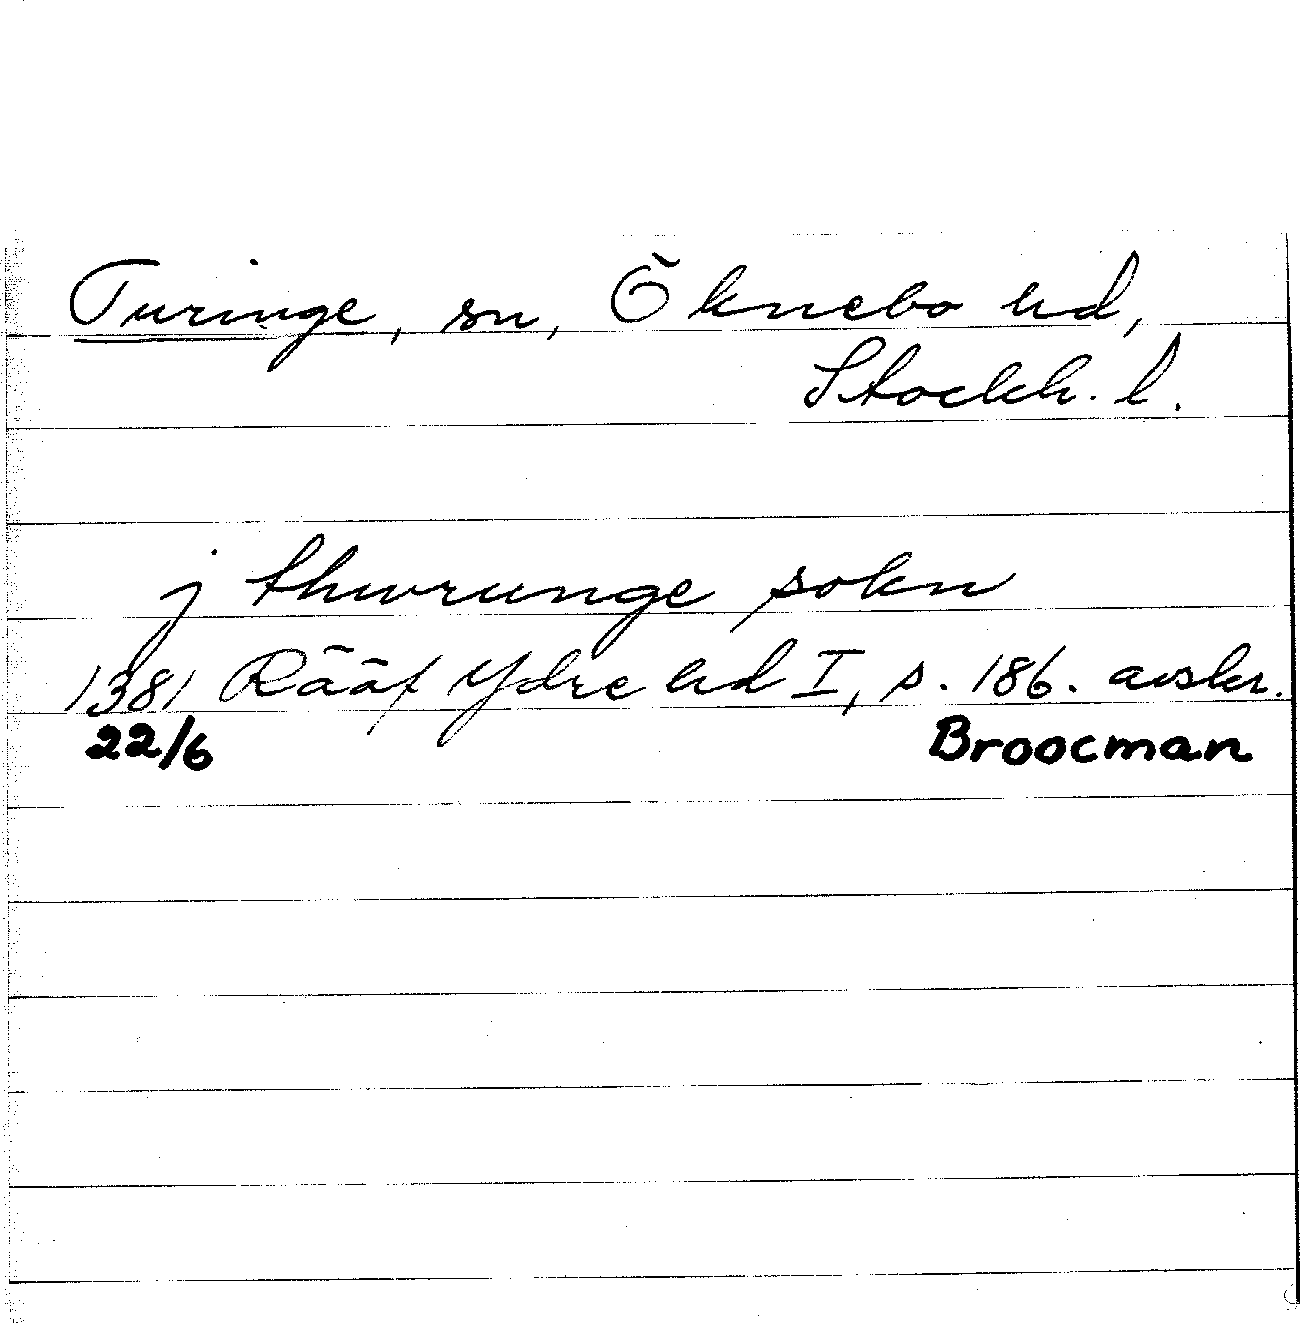 Turinge, sn, Öknebo hd,
Stockh. l.
j thwrunge sokn
1381 Rääf Ydre hd I, s. 186. avskr.
22/6 Broocman